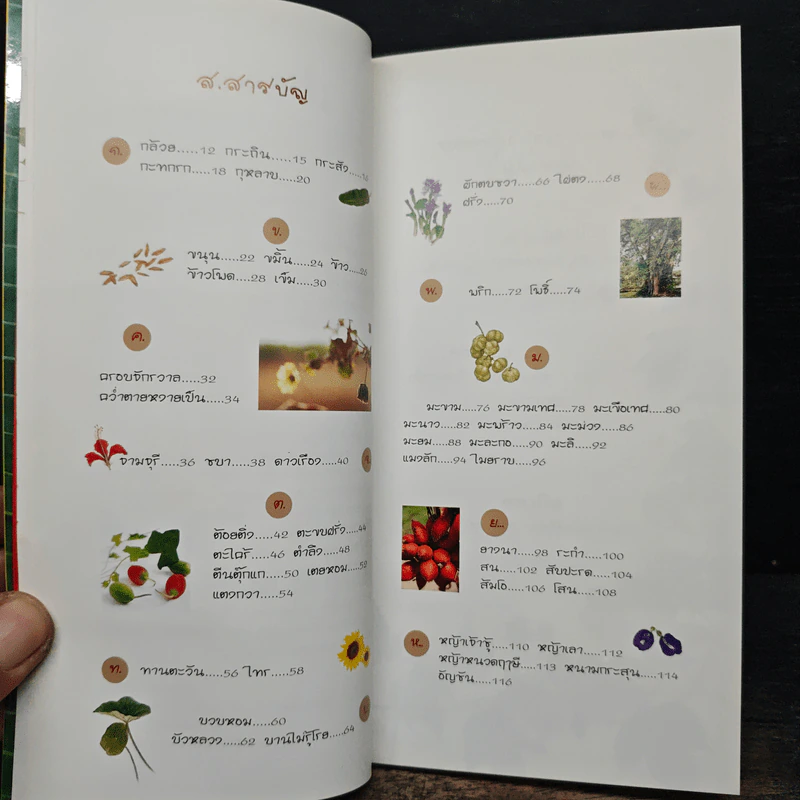 ส.สารบัญ
ก.
กล้วย.....12 กระถิน.....15 กระสัง....
กะทกรก.....18 กุหลาบ.....20
ข.
ขนุน.....22 ขมิ้น.....24 ข้าว.....26
ข้าวโพด.....28 เข็ม.....30
ค.
ครอบจักรวาล.....32
คว่ำตายหงายเป็น.....34
จามจุรี.....36 ชบา.....38 ดาวเรือง.....40
ต.
ต้อยติ่ง.....42 ตะขบฝรั่ง.....44
ตะไคร้.....46 ตำลึง.....48
ตีนตุ๊กแก.....50 เตยหอม.....52
แตงกวา.....54
ท.
ทานตะวัน.....56 ไทร.....58
บวบหอม.....60
บัวหลวง.....62 บานไม่รู้โรย.....64
ผักตบชวา.....66 ไผ่ตง.....68
ฝรั่ง.....70
พ.
พริก.....72 โพธิ์.....74
ม.
มะขาม.....76 มะขามเทศ.....78 มะเขือเทศ.....80
มะนาว.....82 มะพร้าว.....84 มะม่วง.....86
มะยม.....88 มะละกอ.....90 มะลิ.....92
แมงลัก.....94 ไมยราบ.....96
ย...
ยางนา.....98 ระกำ.....100
สน.....102 สับปะรด.....104
ส้มโอ.....106 โสน.....108
ห...
หญ้าเจ้าชู้.....110 หญ้าเลา.....112
หญ้าหนวดฤๅษี.....113 หนามกระสุน.....114
อัญชัน.....116